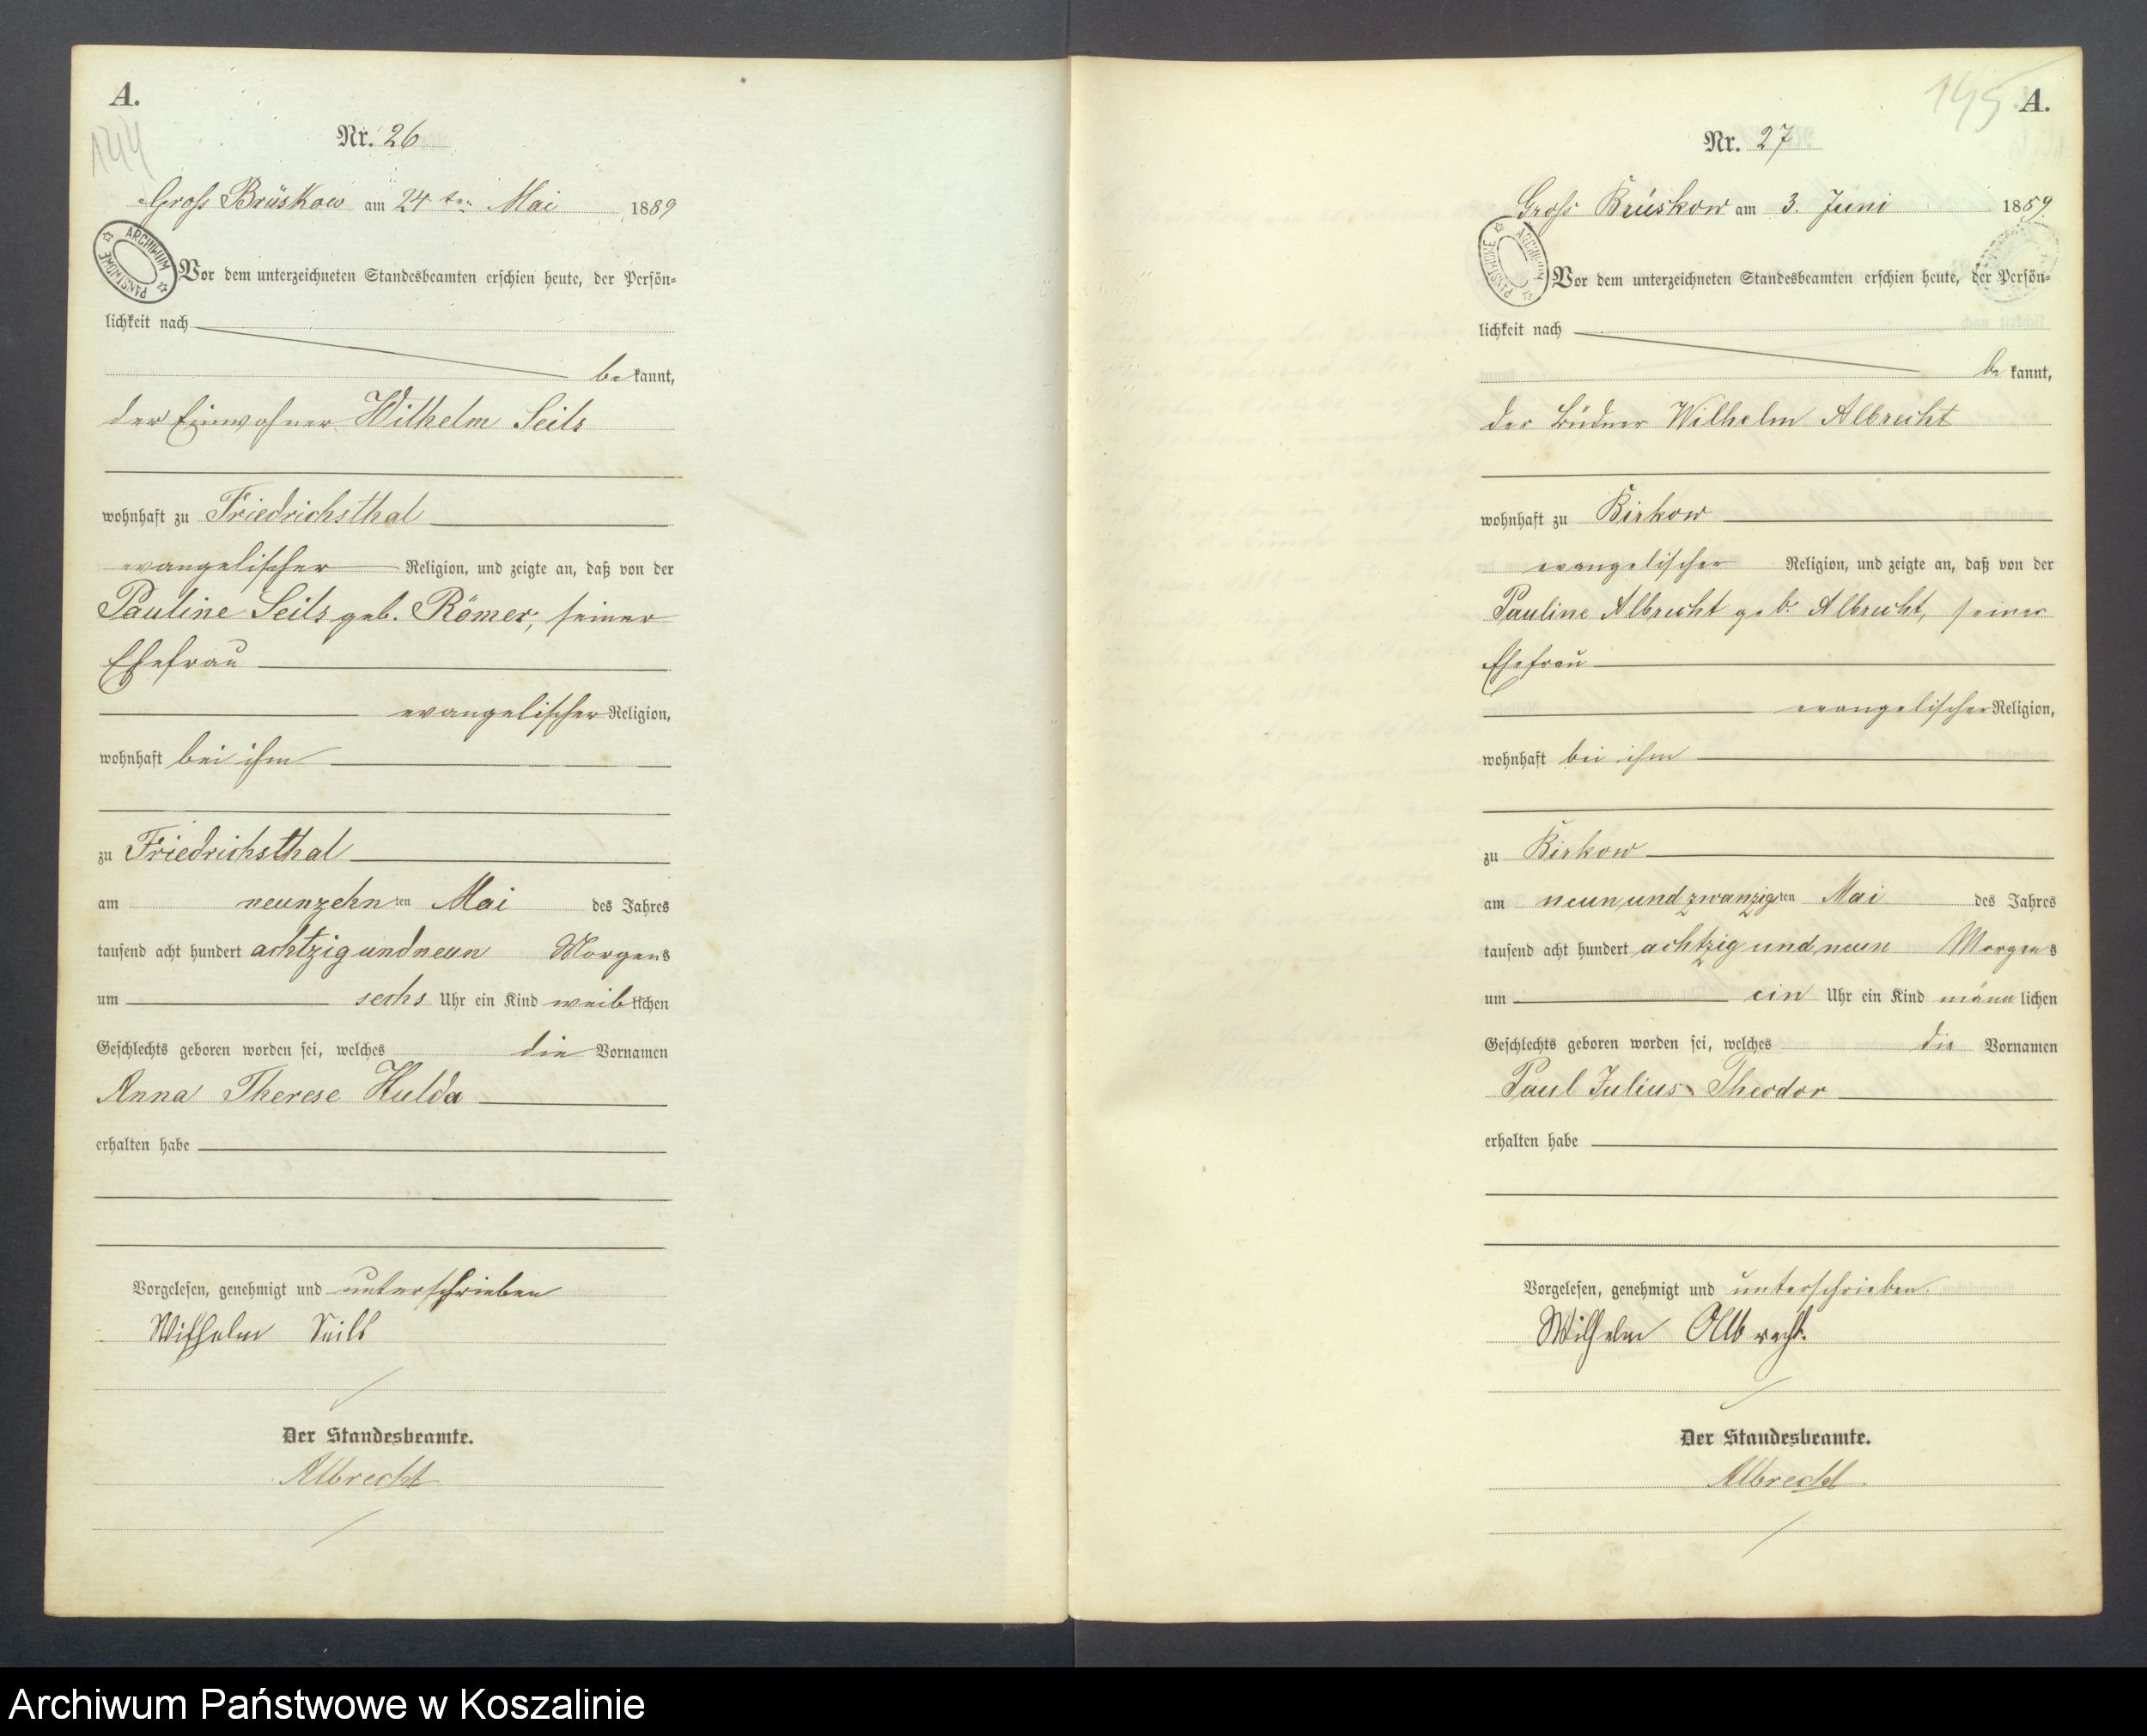 A.
144
Nr. 26
Gross Brüskow am 24ten Mai 1889
ARCHIWUM PAŃSTWOWE
Vor dem unterzeichneten Standesbeamten erschien heute, der Persön=
lichkeit nach
be kannt,
der Einwohner Wilhelm Seils
wohnhaft zu Friedrichsthal
evangelischer Religion, und zeigte an, daß von der
Pauline Seils geb. Römer, seiner
Ehefrau
evangelischer Religion,
wohnhaft bei ihm
zu Friedrichsthal
am neunzehn ten Mai des Jahres
tausend acht hundert achtzig und neun Morgens
um sechs Uhr ein Kind weib lichen
Geschlechts geboren worden sei, welches die Vornamen
Anna Therese Hulda
erhalten habe
Vorgelesen, genehmigt und unterschrieben
Wilhelm Seils
Der Standesbeamte.
Albrecht
145
A.
Nr. 27
Gross Brüskow am 3. Juni 1889.
ARCHIWUM PAŃSTWOWE
Vor dem unterzeichneten Standesbeamten erschien heute, der Persön=
lichkeit nach
be kannt,
der Büdner Wilhelm Albrecht
wohnhaft zu Birkow
evangelischer Religion, und zeigte an, daß von der
Pauline Albrecht geb. Albrecht, seiner
Ehefrau
evangelischer Religion,
wohnhaft bei ihm
zu Birkow
am neun und zwanzig ten Mai des Jahres
tausend acht hundert achtzig und neun Morgens
um ein Uhr ein Kind männ lichen
Geschlechts geboren worden sei, welches die Vornamen
Paul Julius Theodor
erhalten habe
Vorgelesen, genehmigt und unterschrieben.
Wilhelm Albrecht.
Der Standesbeamte.
Albrecht.
Archiwum Państwowe w Koszalinie